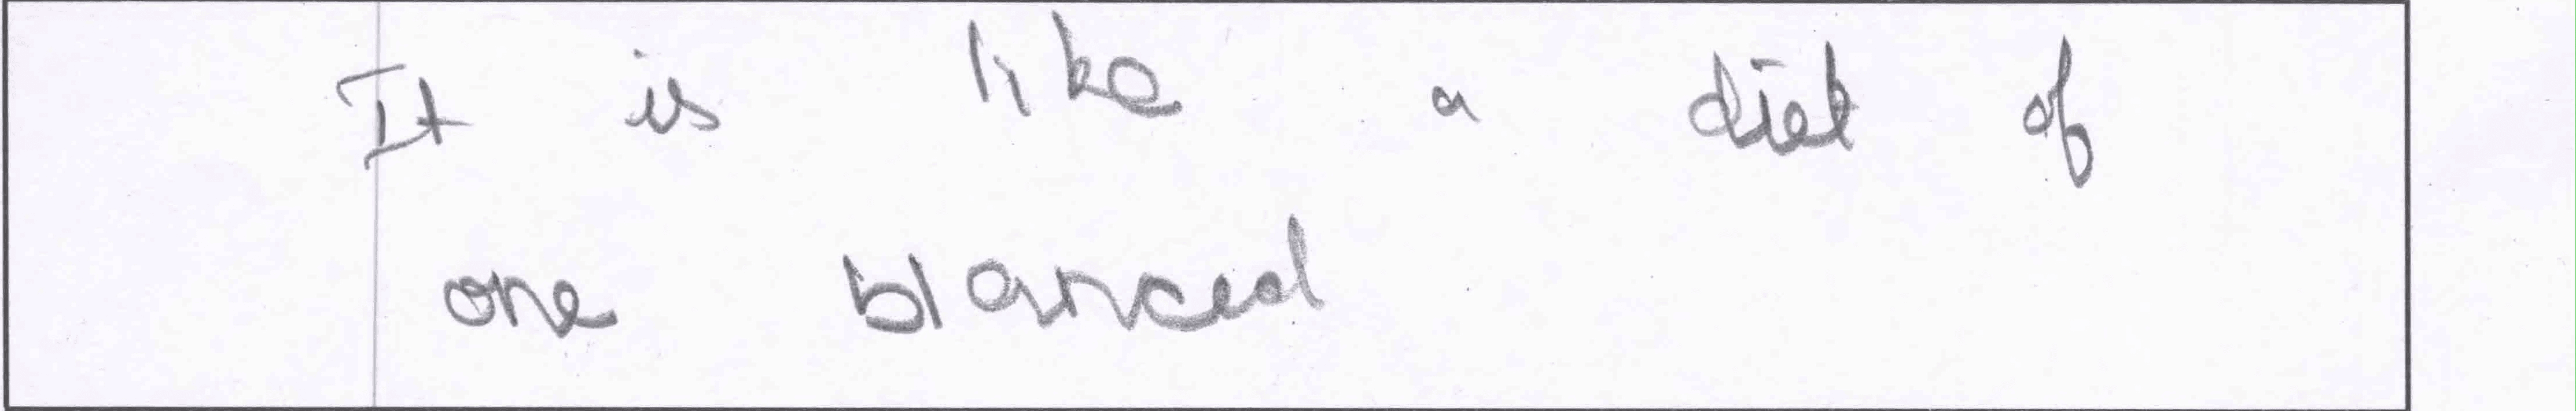 It is like a diet of
one blanced